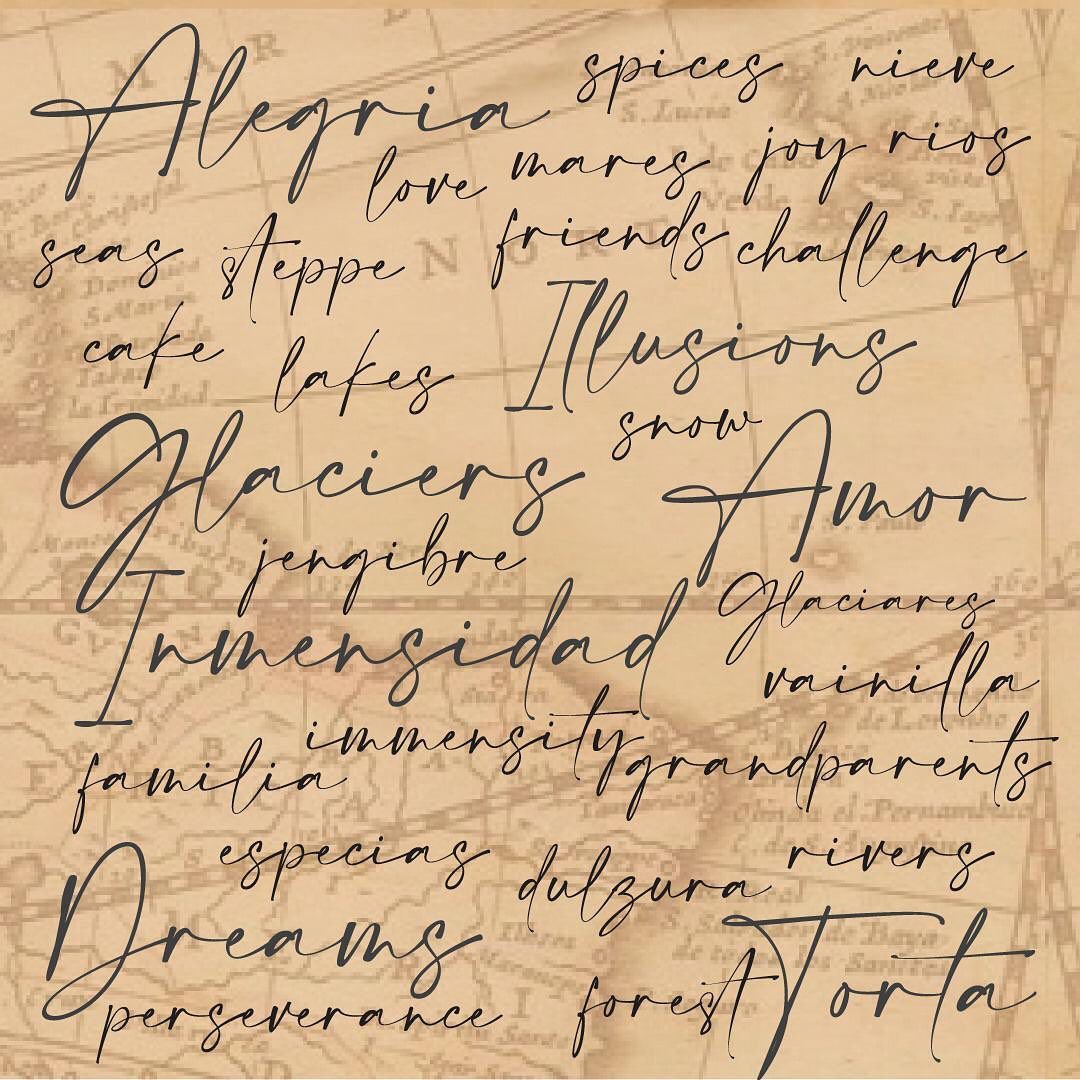 Alegria spices nieve
love mares joy rios
seas steppe friends challenge
cake lakes Illusions
snow
Glaciers Amor
jengibre
Inmensidad Glaciares
vainilla
immensity
familia grandparents
especias dulzura rivers
Dreams
Torta
perseverance forest